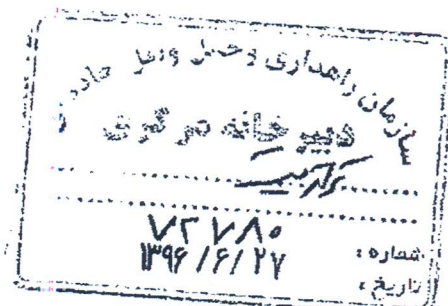 سازمان راهداری و حمل و نقل جاده
دبیرخانه مرکزی
شماره : ۷۲۷۸۰
تاریخ : ۱۳۹۶/۶/۲۷